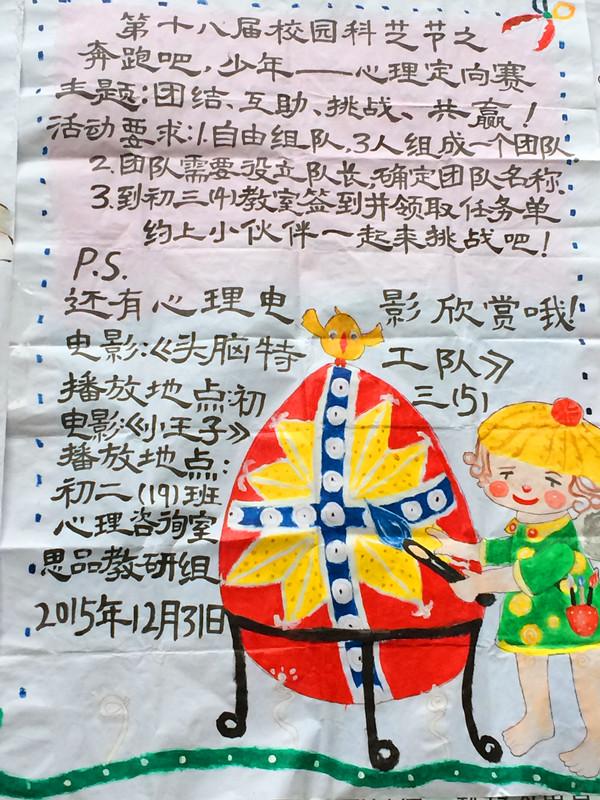 第十八届校园科艺节之
奔跑吧,少年——心理定向赛
主题:团结、互助、挑战、共赢!
活动要求:1.自由组队,3人组成一个团队.
2.团队需要设立队长,确定团队名称.
3.到初三(4)教室签到并领取任务单
约上小伙伴一起来挑战吧!
P.S.
还有心理电影欣赏哦!
电影:《头脑特工队》
播放地点:初三(5)
电影:《小王子》
播放地点:
初二(19)班
心理咨询室
思品教研组
2015年12月31日